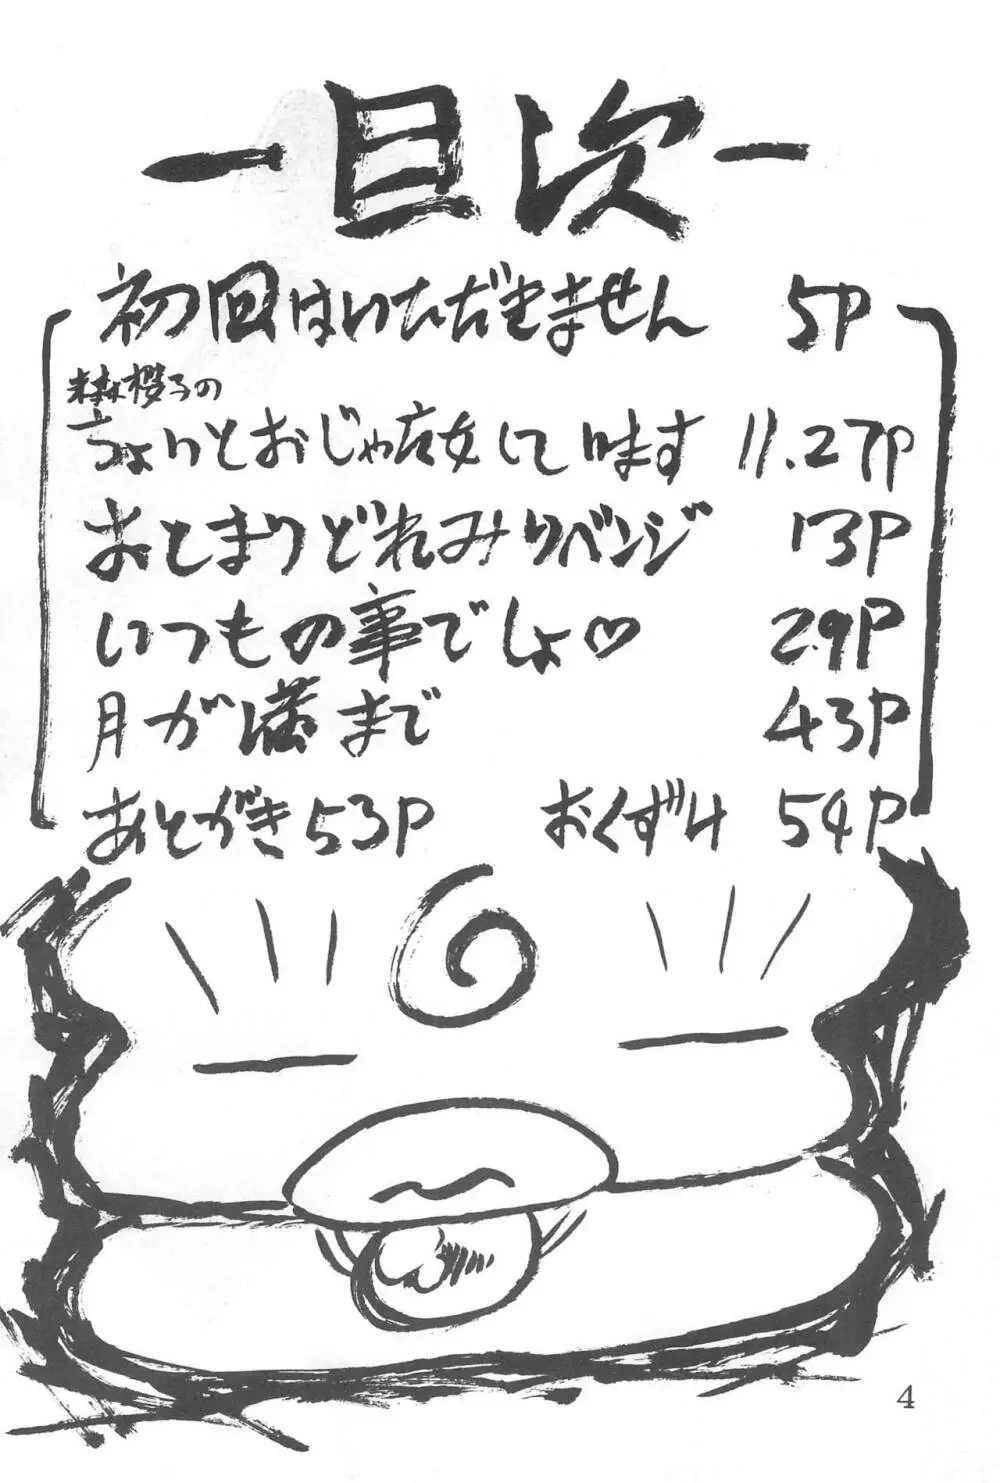 －目次－
初回はいただきません 5P
森櫻子の
ちょいとおじゃ魔女して味ます 11.27P
おとまりどれみリベンジ 13P
いつもの事でしょ♡ 29P
月が満まで 43P
あとがき 53P おくずけ 54P
4